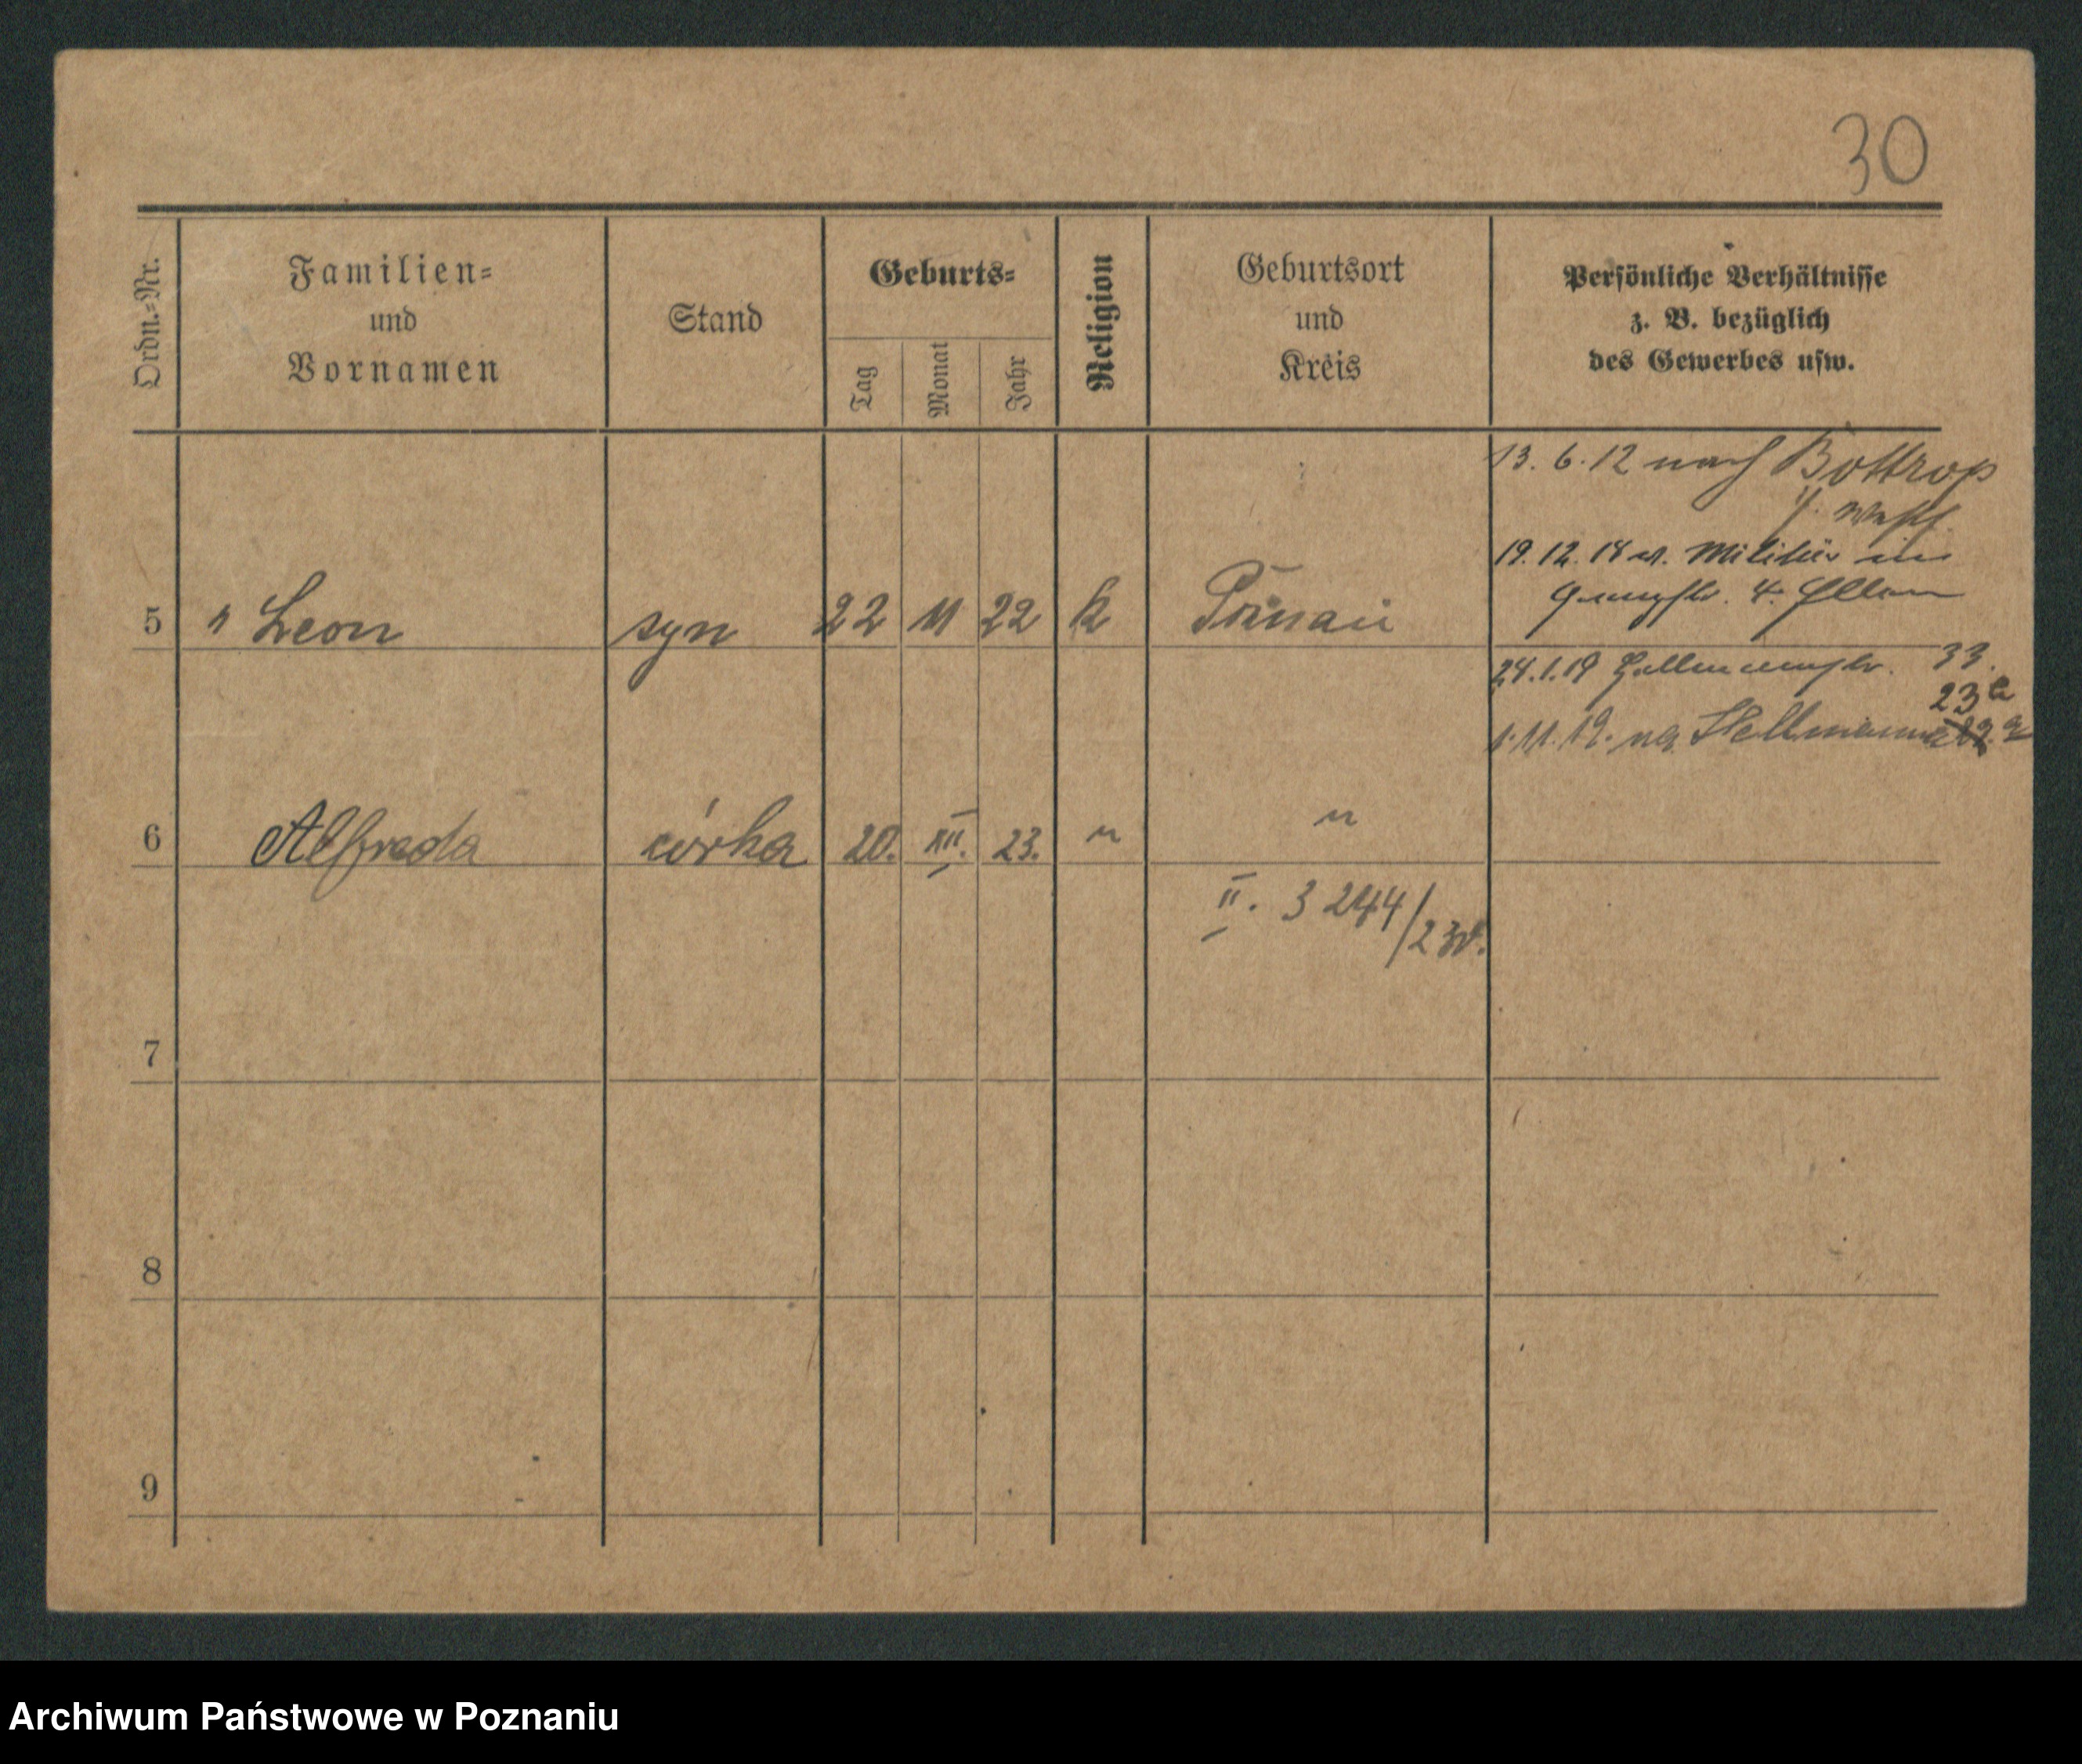 30
Ordn.-Nr.
Familien-
und
Vornamen
Stand
Geburts-
Tag
Monat
Jahr
Religion
Geburtsort
und
Kreis
Persönliche Verhältnisse
z. B. bezüglich
des Gewerbes usw.
13. 6. 12 nach Bottrop
i/ Westf.
19. 12. 18 v. Militär
4.
5 " Leon syn 22 11 22 k Poznań
24.1.19 33.
23a
1.11.19. na Hellmanna
6 Alfreda córka 20. XII. 23. " "
II. 3244/23
7
8
9
Archiwum Państwowe w Poznaniu